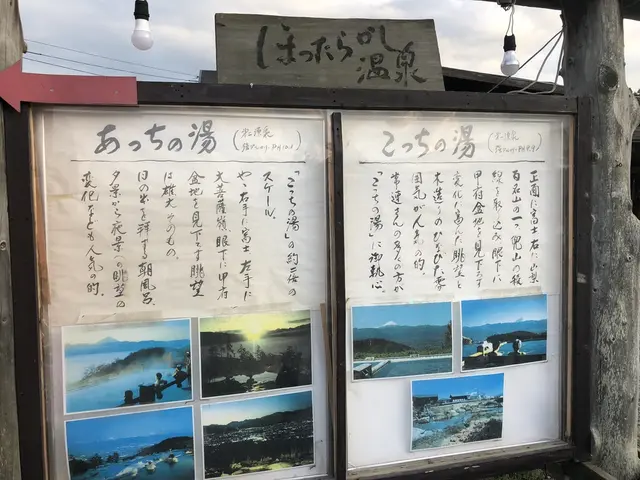 ほったらかし
温泉
こっちの湯
正面に富士 右に山梨
百名山の一つ 兜山の稜
線を取り込み 眼下に
甲府盆地を見下ろす
変化に富んだ眺望と
木造りのひなびた雰
囲気が人気の的。
常連さんの多くの方が
「こっちの湯」に御執心。
あっちの湯
「こっちの湯」の約二倍の
スケール。
やゝ右手に富士 左手に
大菩薩嶺 眼下に甲府
盆地を見下ろす眺望
は雄大そのもの。
日の出を拝する朝風呂、
夕景から夜景への眺望の
変化なども人気の的。